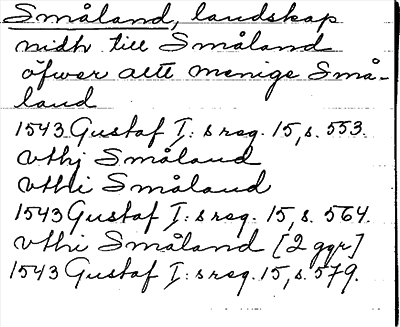 Småland, landskap
nidh till Småland
öfwer alle menige Små-
land
1543 Gustaf I:s reg. 15, s. 553.
vthj Småland
vthi Småland
1543 Gustaf I:s reg. 15, s. 564.
vthi Småland [2 ggr]
1543 Gustaf I:s reg. 15, s. 579.